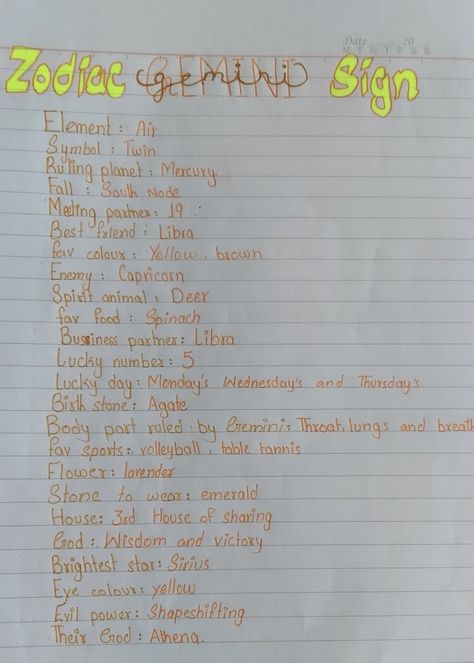 Date 20
M T W T F S S
Zodiac GEMINI gemini Sign
Element : Air
Symbol : Twin
Ruling planet : Mercury
Fall : South Node
Meeting partner : 19
Best friend : Libra
fav colour : Yellow, brown
Enemy : Capricorn
Spirit animal : Deer
fav food : Spinach
Business partner : Libra
Lucky number : 5
Lucky day : Monday's Wednesday's and Thursday's
Birth stone : Agate
Body part ruled by Gemini : Throat, lungs and breath
fav sports : volleyball, table tannis
Flower : lavender
Stone to wear : emerald
House : 3rd House of sharing
God : Wisdom and victory
Brightest star : Sirius
Eye colour : yellow
Evil power : Shapeshifting
Their God : Athena.